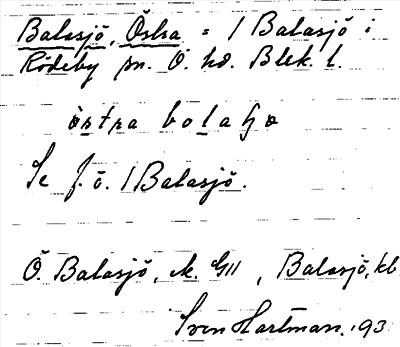 Balasjö, Östra = / Balasjö i
Rödeby sn. Ö. hd. Blek. l.
östra bolaʃo
Se f.ö. / Balasjö.
Ö. Balasjö, , Balasjö, kb
Sven Hartman. 93